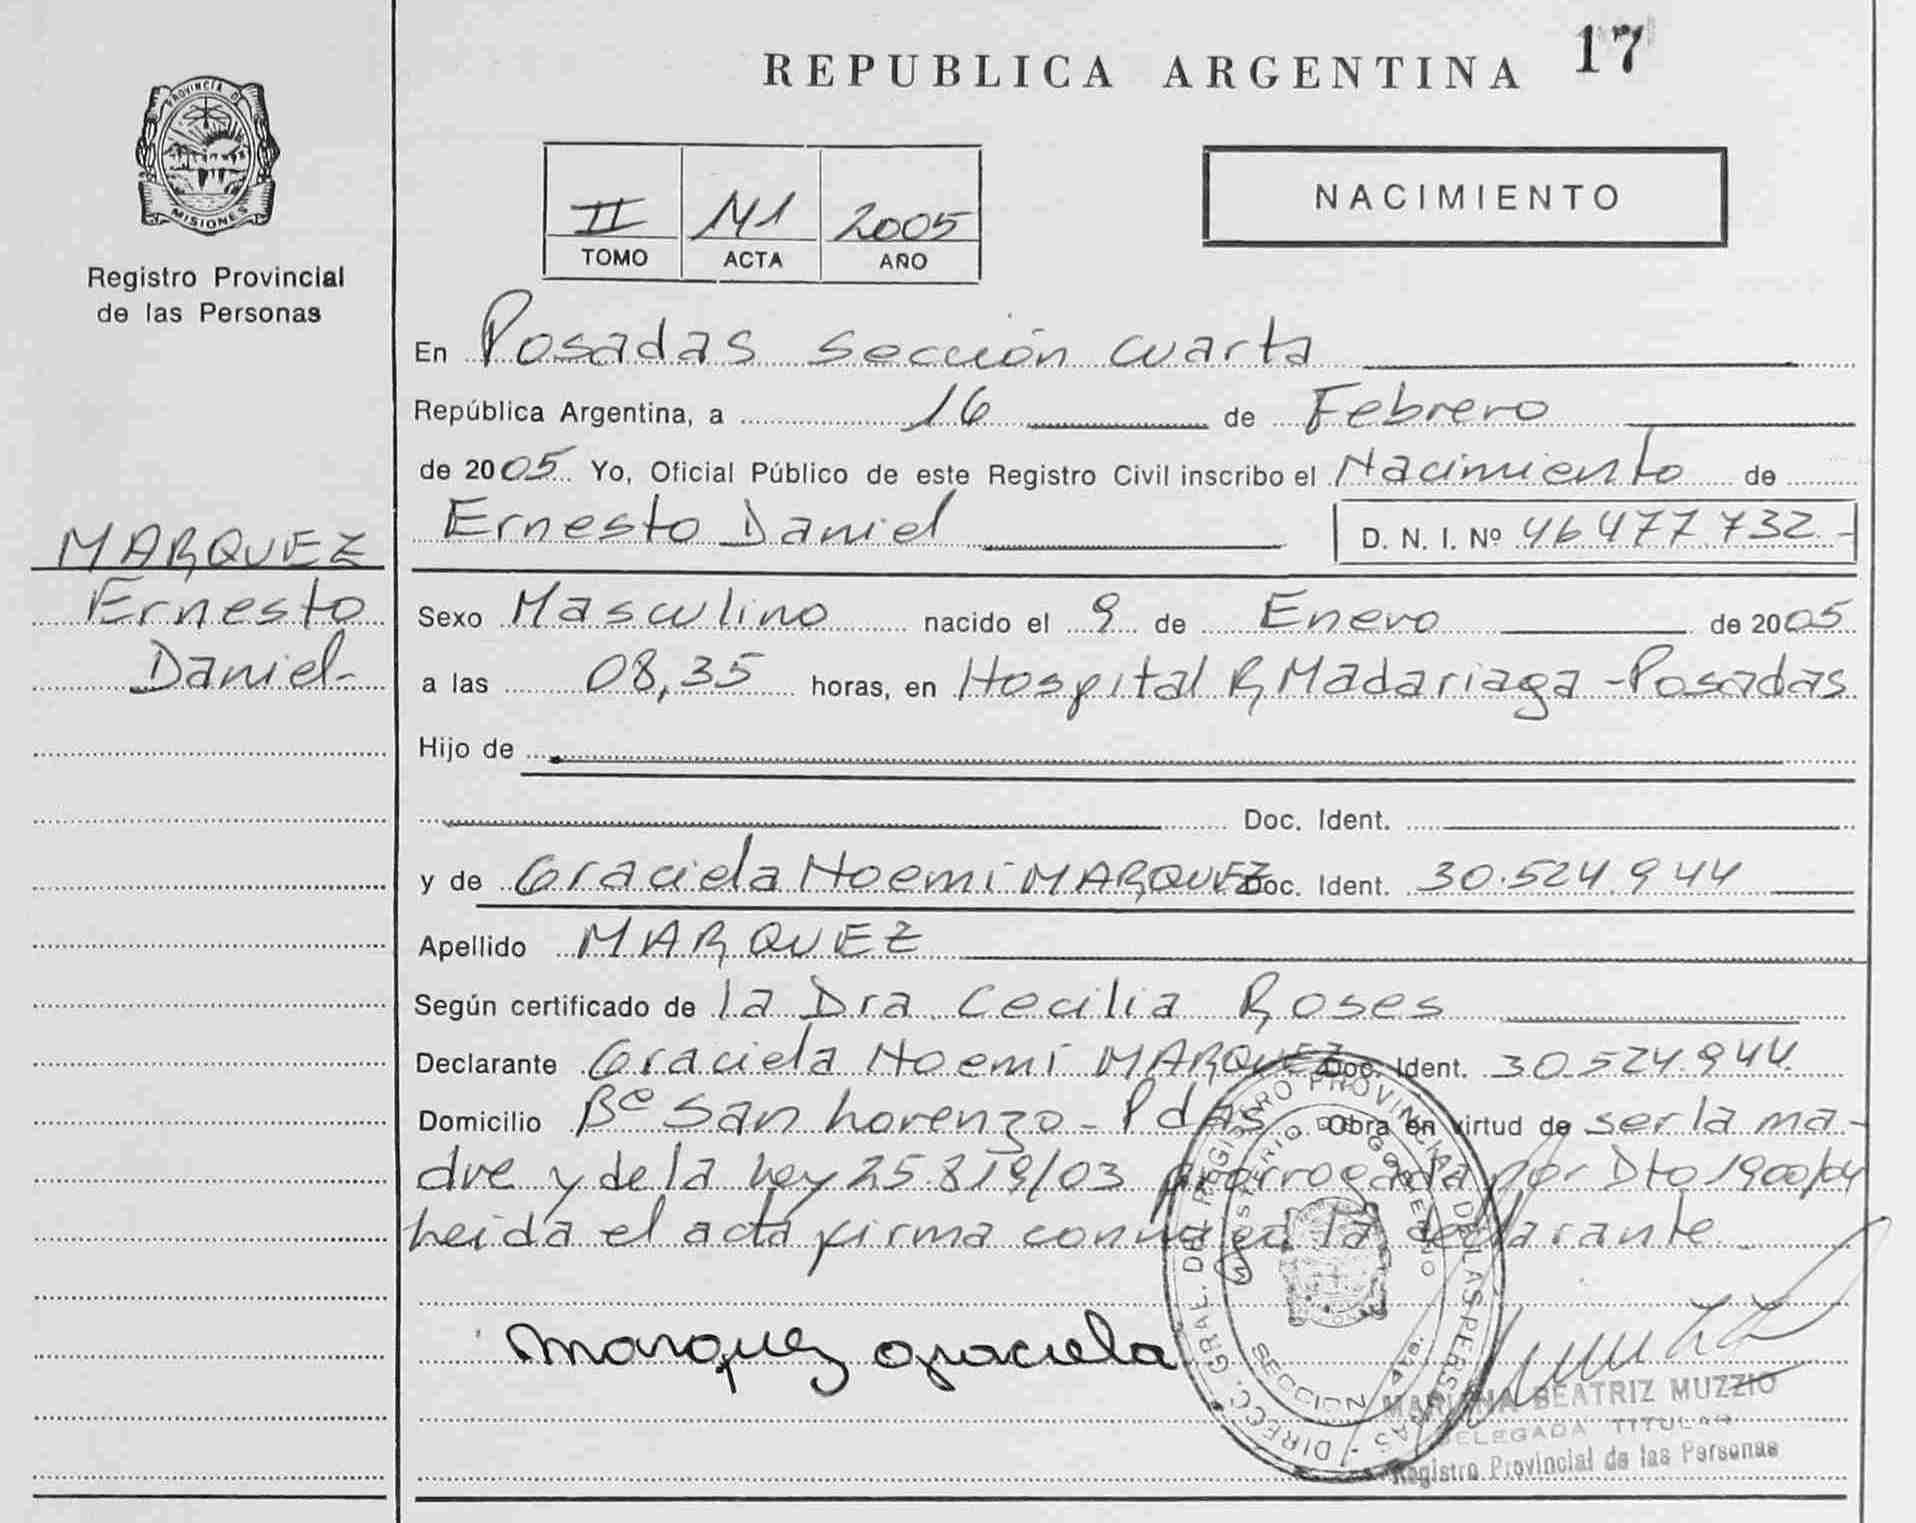 REPUBLICA ARGENTINA 17
PROVINCIA DE
MISIONES
Registro Provincial
de las Personas
II M1 2005
TOMO ACTA AÑO
NACIMIENTO
En Posadas sección cuarta
República Argentina, a 16 de Febrero
de 2005 Yo, Oficial Público de este Registro Civil inscribo el Nacimiento de
Ernesto Daniel D. N. I. Nº 46477732.-
MARQUEZ
Ernesto
Daniel-
Sexo Masculino nacido el 9 de Enero de 2005
a las 08,35 horas, en Hospital R Madariaga - Posadas
Hijo de
Doc. Ident.
y de Graciela Noemi MARQUEZ Doc. Ident. 30.524.944
Apellido MARQUEZ
Según certificado de la Dra Cecilia Roses
Declarante Graciela Noemi MARQUEZ Doc. Ident. 30.524.944.
Domicilio Bº San Lorenzo - Pdas Obra en virtud de ser la ma-
dre y de la Ley 25.819/03 prorrogada por Dto 1900/04
Leida el acta firma conmigo la declarante
Marquez Graciela
DIRECC. GRAL. DEL REGISTRO PROVINCIAL DE LAS PERSONAS
MINISTERIO DE GOBIERNO
SECCION 4ta
BEATRIZ MUZZIO
DELEGADA TITULAR
Registro Provincial de las Personas